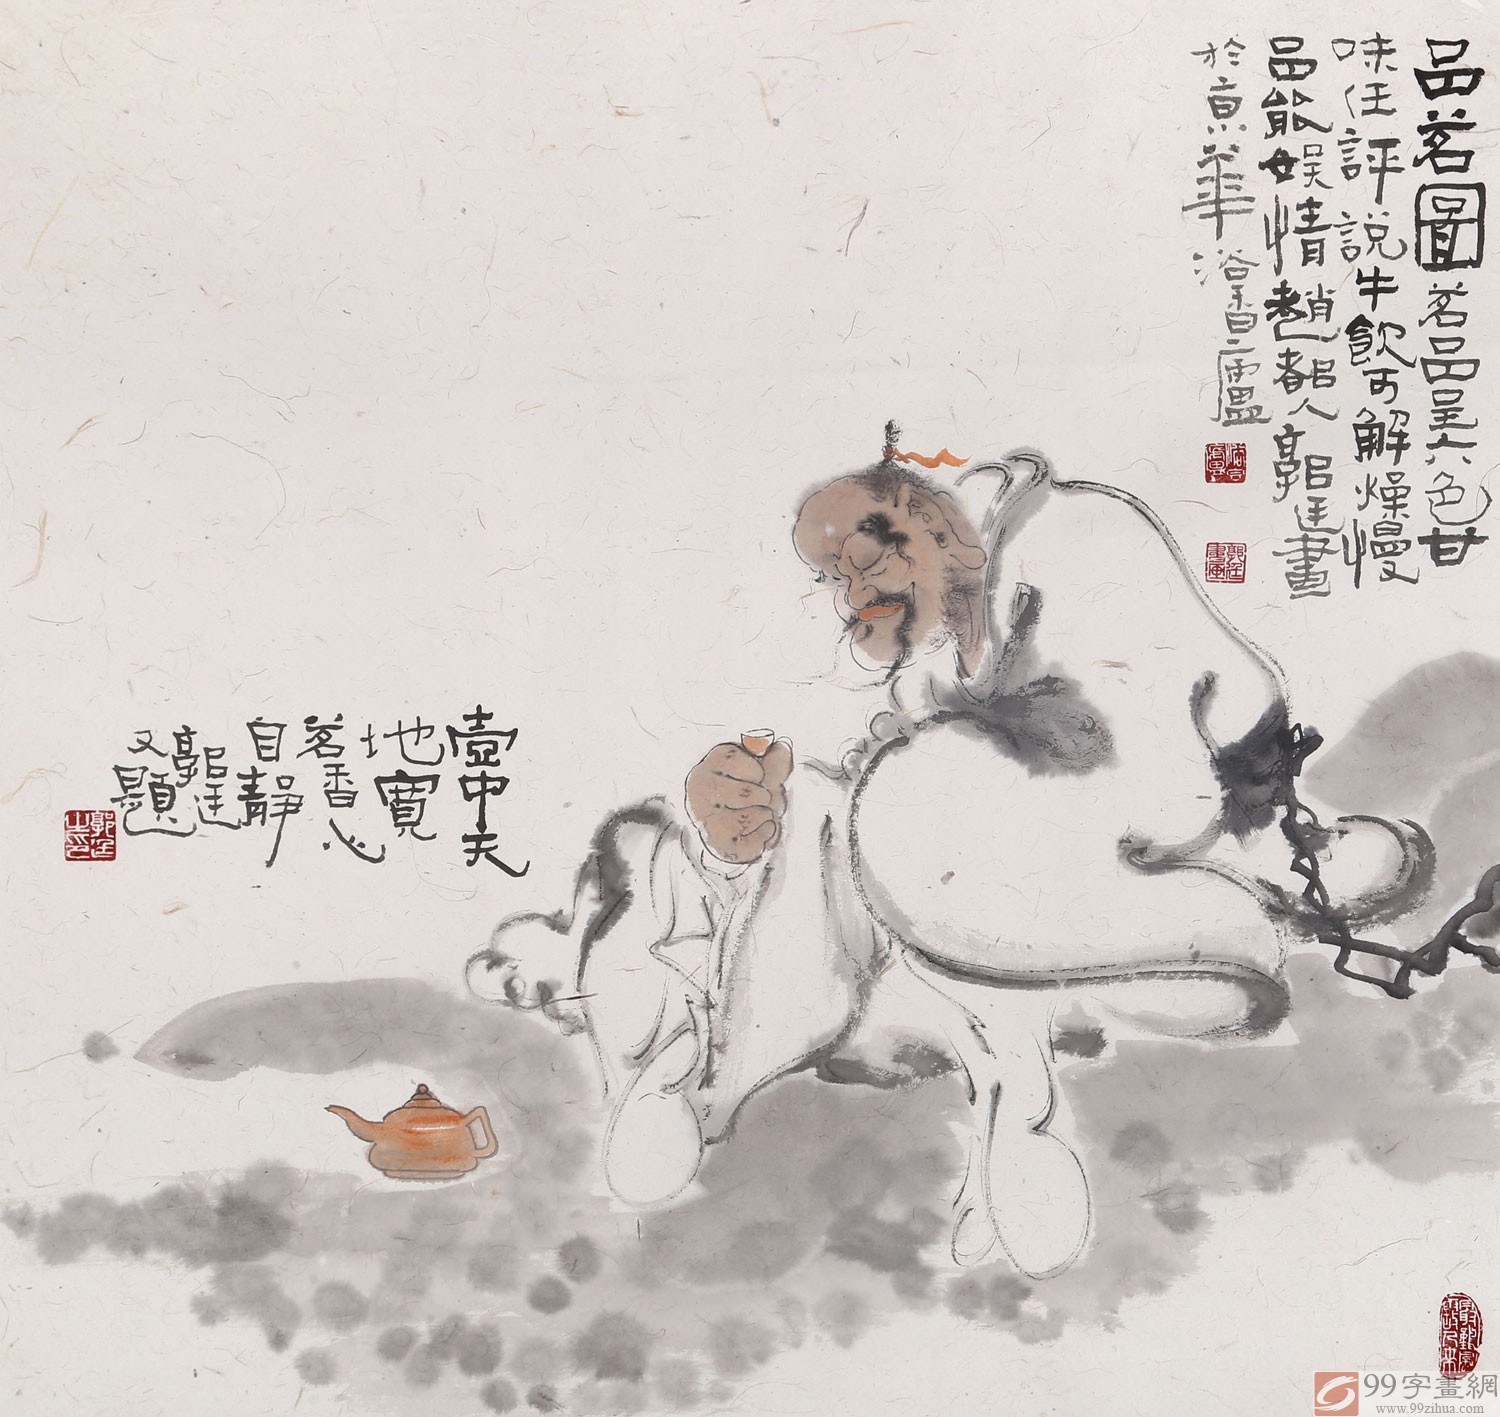 品茗圖 茗品呈六色甘
味任評說牛飲可解燥慢
品能娛情趙都人郭廷畫
於京華浴香廬
壺中天
地寬
茗香心
自靜
郭廷
又題
99字畫網
www.99zihua.com